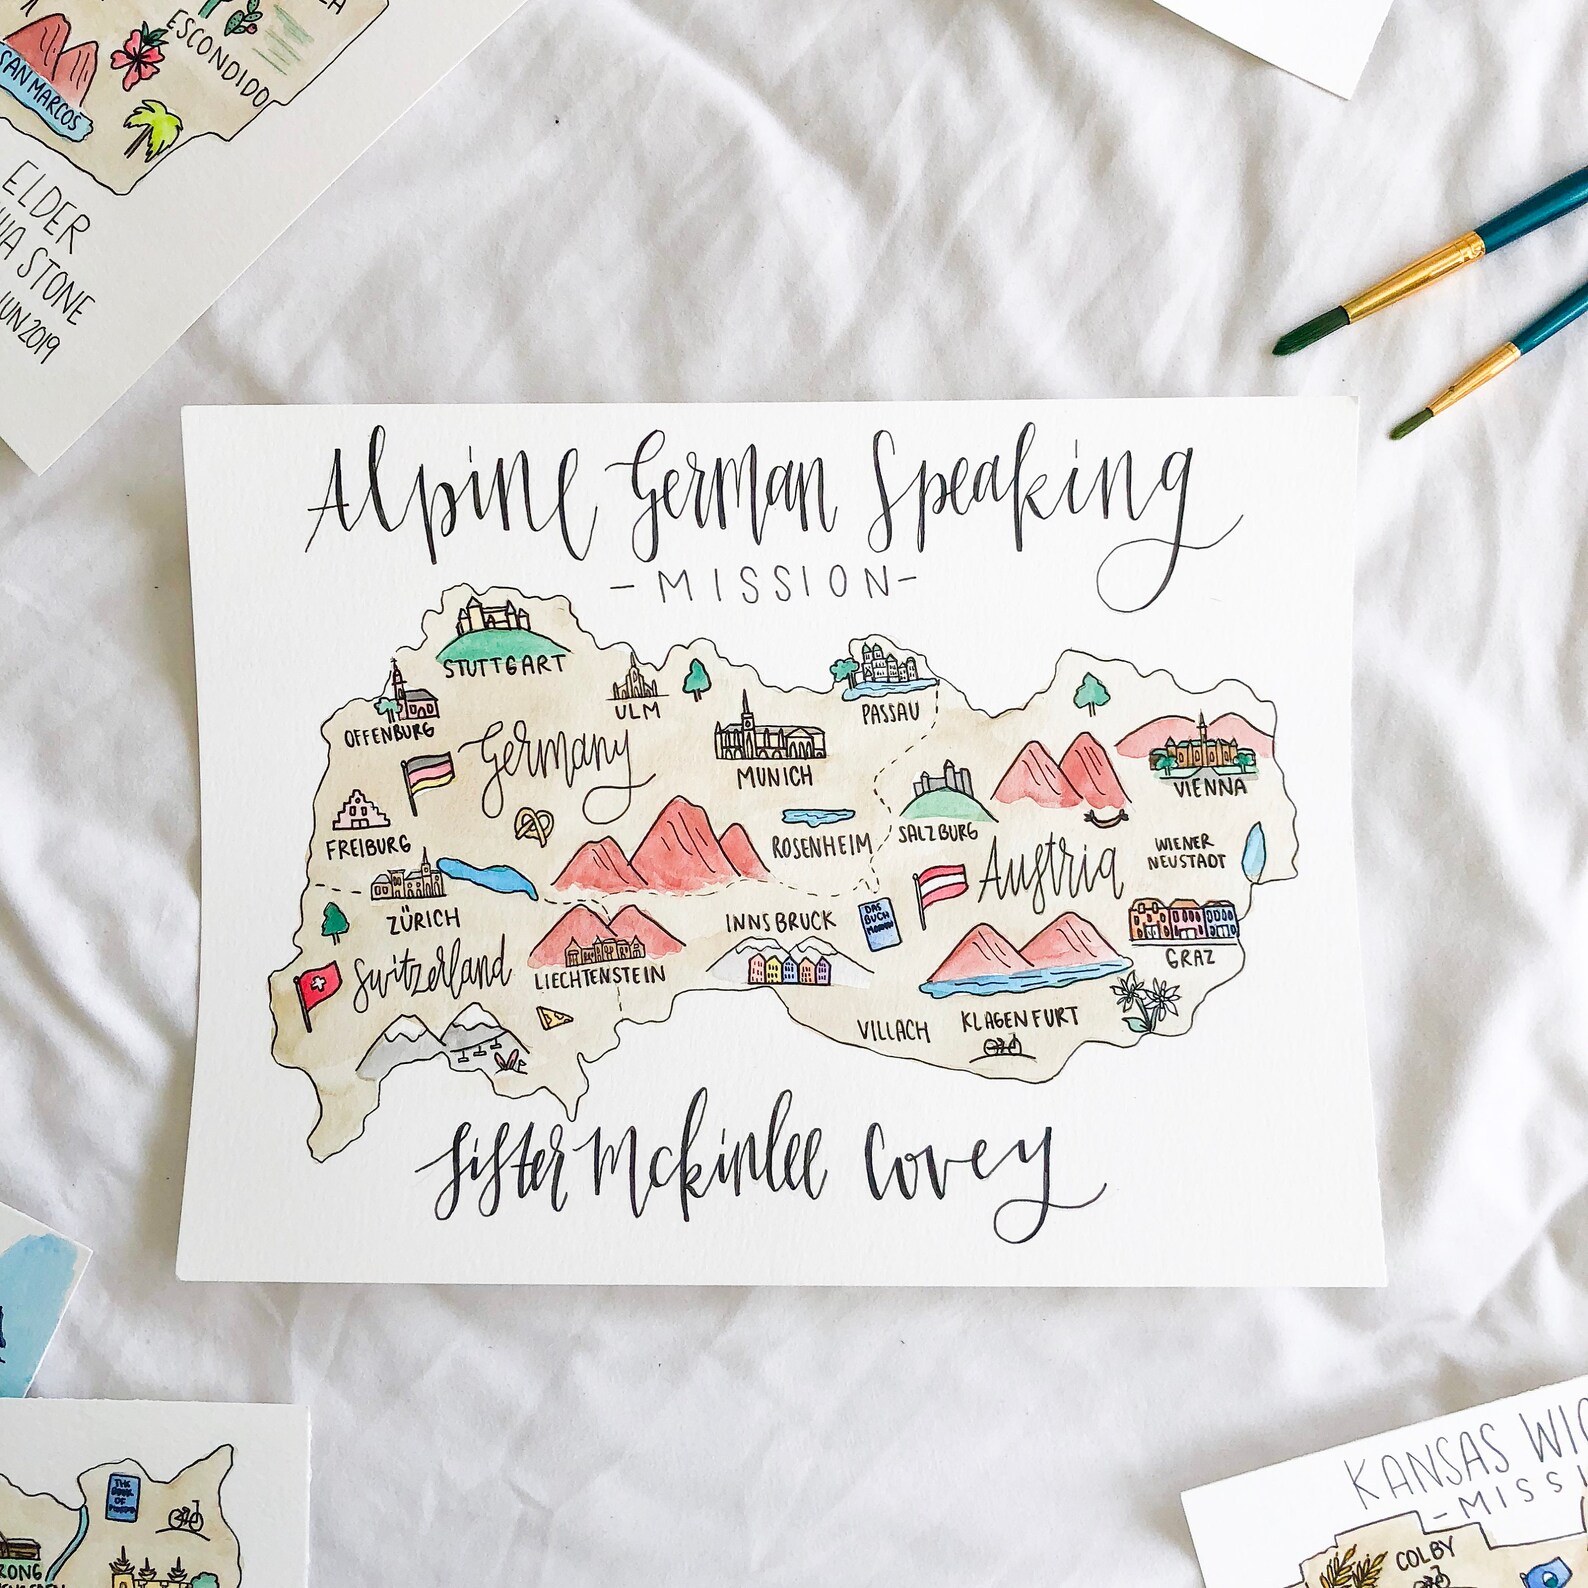 ESCONDIDO
SAN MARCOS
ELDER
STONE
JUN 2019
Alpine German Speaking
-MISSION-
STUTTGART
OFFENBURG
ULM
PASSAU
Germany
MUNICH
VIENNA
FREIBURG
ROSENHEIM
SALZBURG
Austria
WIENER
NEUSTADT
ZÜRICH
INNSBRUCK
DAS
BUCH
MORMON
GRAZ
Switzerland
LIECHTENSTEIN
VILLACH
KLAGENFURT
Sister Mckinlee Covey
THE
BOOK
OF
MORMON
RONG
KANSAS
COLBY